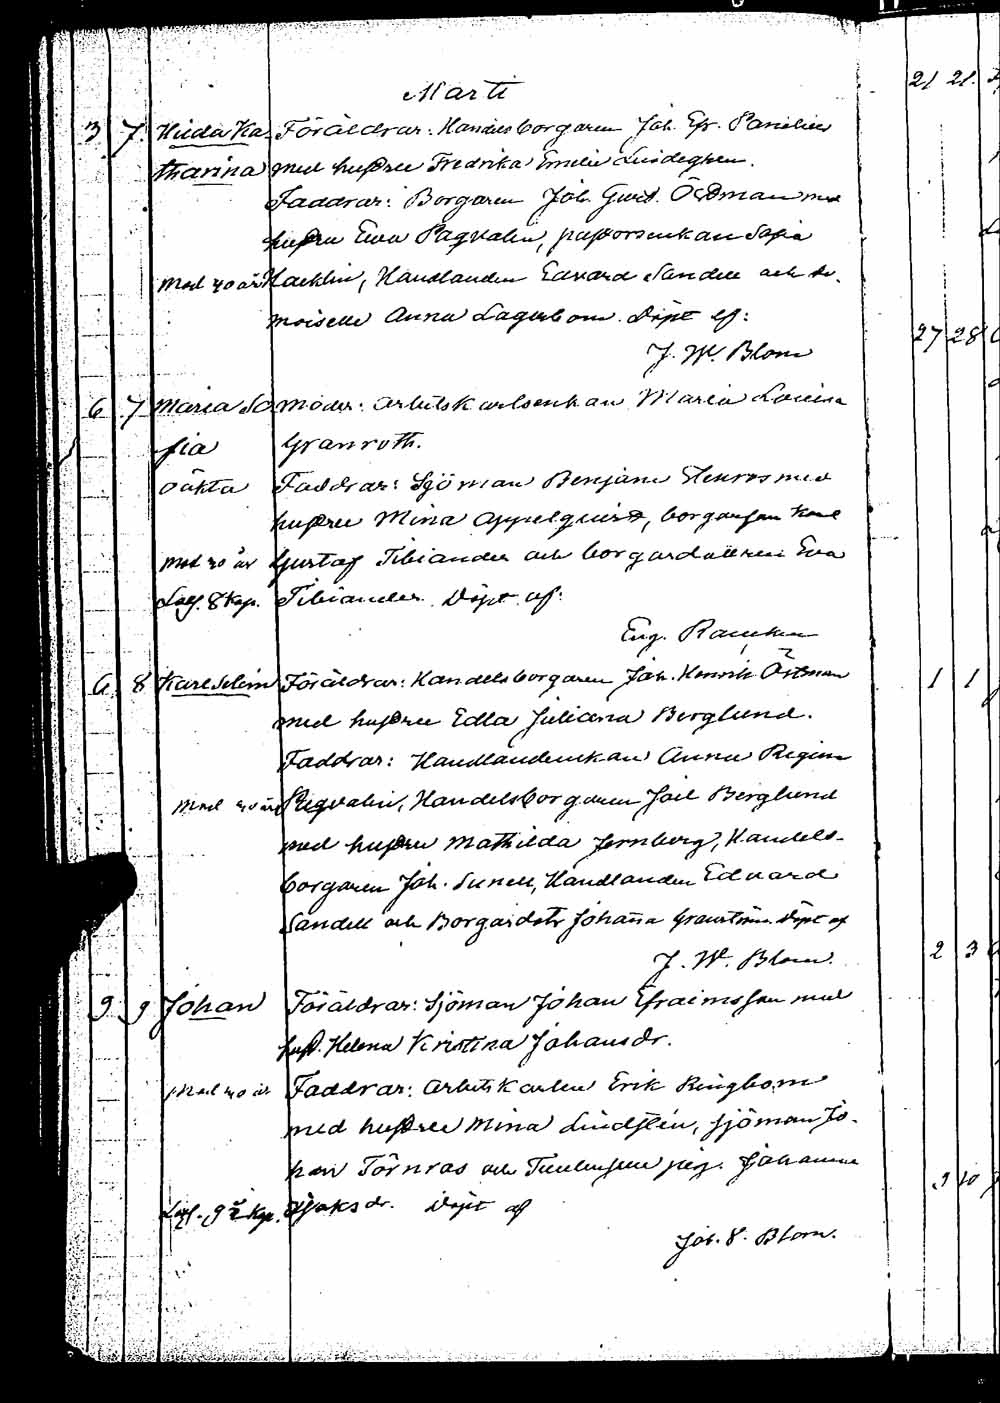 Marti
3 7. Hilda Ka- Föräldrar: Handelsborgaren Joh. Efr.
tharina med hustru Fredrika Emilie Lindegren.
Faddrar: Borgaren Joh. Gust. Östman med
hustru Eva, pastorsenkan Sofia
Med. 40 år Hacklin, Handlanden Edvard Sandell och de-
moiselle Anna Lagerbom. Döpt af:
J. W. Blom
6 7 Maria So Moder: Arbetskarlsenkan Maria Lovisa
fia Granroth.
oäkta Faddrar: Sjöman Benjam Stenros med
hustru Mina Appelqvist, borgarson Karl
Med. 40 år Gustaf Tibiander och borgardottren Eva
8 kap. Tibiander. Döpt af:
Eug. Rancken
6 8 Karl Selim Föräldrar: Handelsborgaren Joh. Henrik Östman
med hustru Edla Juliana Berglund.
Faddrar: Handlandenkan Anna Regina
Med 40 år Handelsborgaren Joel Berglund
med hustru Mathilda Jernberg, Handels-
borgaren Joh. Sunell, Handlanden Edvard
Sandell och Borgardotr Johanna Granström. Döpt af
J. W. Blom.
9 9 Johan Föräldrar: Sjöman Johan Efraimsson med
hust. Helena Kristina Johansdr.
Med 40 år Faddrar: Arbetskarlen Erik Ringbom
med hustru Mina Lindsten, sjöman Jo-
han Törnroos och pig. Johanna
9 kap. Isaksdr. Döpt af
Joh. 8. Blom.
21 21.
27 28
1 1
2 3
9 10